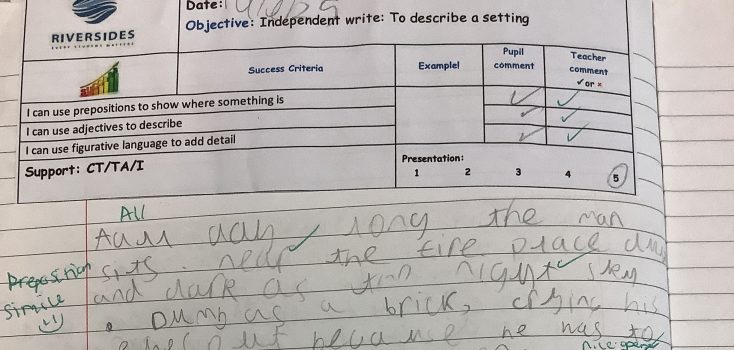 Date:
Objective: Independent write: To describe a setting
RIVERSIDES
EVERY STUDENT MATTERS
Success Criteria
Example!
Pupil comment
Teacher comment
✓ or ×
I can use prepositions to show where something is
I can use adjectives to describe
I can use figurative language to add detail
Support: CT/TA/I
Presentation:
1 2 3 4 5
All
day long the man
Preposition
sits near the fire place
Simile
and dark as night sky
Dumb as a brick, crying his
out because he has to